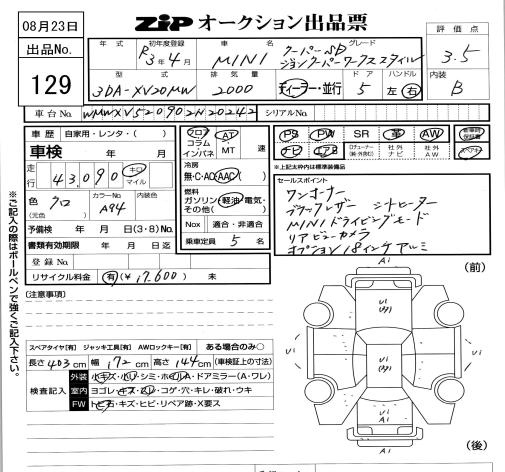 08月23日
出品No.
129
ZIP オークション出品票
評価点
3.5
内装
B
年式 初年度登録 車名 グレード
R3年4月 MINI クーパーSD ジョンクーパーワークススタイル
型式 排気量 ドア ハンドル
3DA-XV20MW 2000 ディーラー・並行 5 左 右
車台No. WMWXV520902N20242 シリアルNo.
車歴 自家用・レンタ・( )
車検 年 月
走行 43,090 キロ マイル
色 クロ (元色) カラーNo. A94 内装色
予備検 年 月 日(3・8)No.
書類有効期限 年 月 日迄
登録No.
リサイクル料金 有(¥17,600) 未
フロア コラム インパネ AT MT 速
冷房
無・C・AC・AAC( )
燃料
ガソリン・軽油・電気・その他( )
Nox 適合・非適合
乗車定員 5 名
PS PW SR 革 AW
ナビ エアB 社外ナビ 社外AW
新車時保証書
スペアキー
*上記太枠内は標準装備品
セールスポイント
ワンオーナー
ブラックレザー シートヒーター
MINIドライビングモード
リアビューカメラ
オプション18インチアルミ
※ご記入の際はボールペンで強くご記入下さい。
(注意事項)
スペアタイヤ[有] ジャッキ工具[有] AWロックキー[有] ある場合のみ○
長さ 403 cm 幅 172 cm 高さ 144 cm (車検証上の寸法)
検査記入
外装 小キズ・小U・シミ・ホイールA・ドアミラー(A・ワレ)
室内 ヨゴレ・キズ・スレ・コゲ・穴・キレ・破れ・ウキ
FW トビ石・キズ・ヒビ・リペア跡・X要ス
(前)
A1
A1
U1
U1
U1
U1
A1
(後)